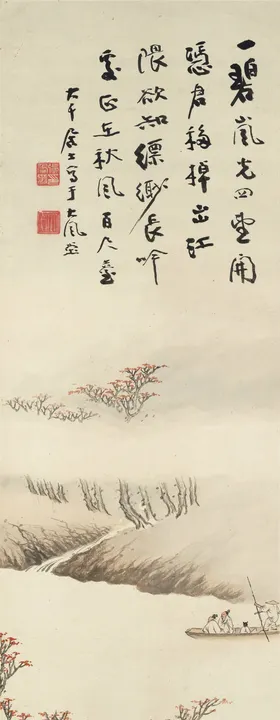 一碧嵐光四望開
憑君移棹出江
隈欲知縹緲長吟
處正在秋風百尺臺
大千居士寫于大風堂